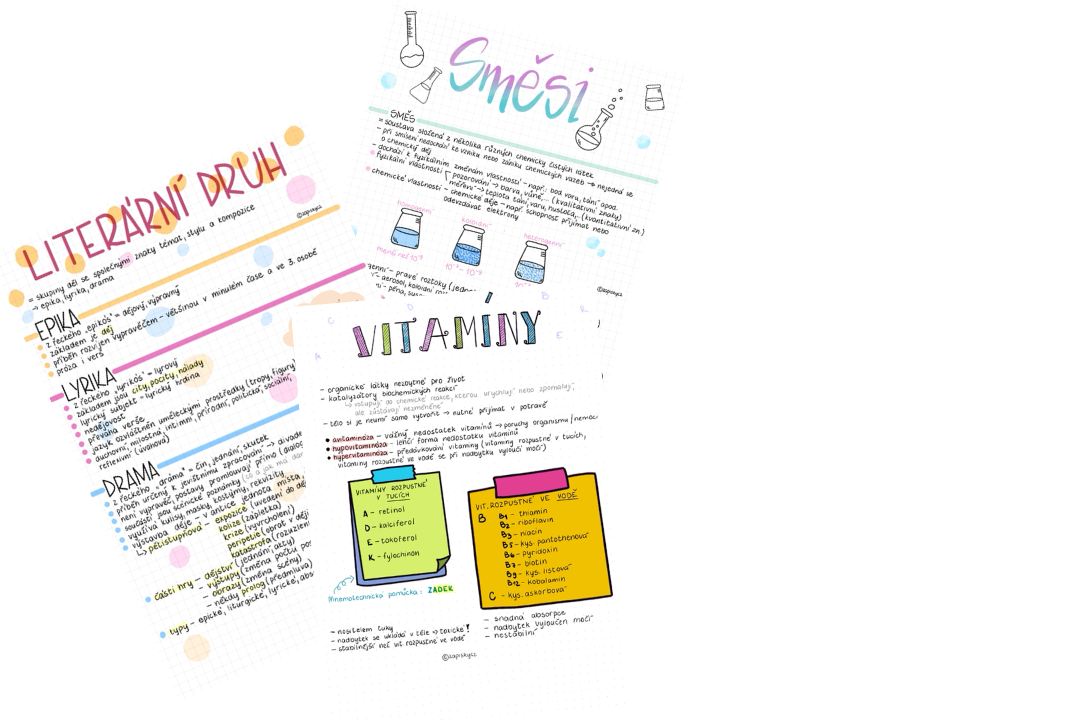 LITERÁRNÍ DRUH
©zapiskycz
= skupiny děl se společnými znaky témat, stylu a kompozice
→ epika, lyrika, drama
EPIKA
z řeckého „epikós" = dějový, výpravný
základem je děj
příběh rozvíjen vypravěčem – většinou v minulém čase a ve 3. osobě
próza i verš
LYRIKA
z řeckého „lyrikós" = lyrový
základem jsou city, pocity, nálady
lyrický subjekt = lyrický hrdina
nedějovost
převaha verše
jazyk ozvláštněn uměleckými prostředky (tropy, figury)
duchovní, milostná, intimní, přírodní, politická, sociální,
reflexivní (úvahová)
DRAMA
z řeckého „dráma" = čin, jednání, skutek
příběh určený k jevištnímu zpracování → divade
není vypravěč, postavy promlouvají přímo (dialog
součástí jsou scénické poznámky (co a jak má
využívá kulisy, masky, kostýmy, rekvizity
výstavba děje – v antice jednota místa,
↳ pětistupňová – expozice (uvedení do dě
kolize (zápletka)
krize (vyvrcholení)
peripetie (obrat v ději
katastrofa (rozuzlen
části hry – dějství (jednání, akty)
– výstupy (změna počtu pos
– obrazy (změna scény)
– někdy prolog (předmluva)
typy – epické, liturgické, lyrické, abs
Směsi
SMĚS
= soustava složená z několika různých chemicky čistých látek
– při smísení nedochází ke vzniku nebo zániku chemických vazeb → nejedná se
o chemický děj
– dochází k fyzikálním změnám vlastností – např.: bod varu, tání apod.
fyzikální vlastnosti pozorování → barva, vůně,... (kvalitativní znaky)
měření → teplota tání, varu, hustota,... (kvantitativní zn.)
chemické vlastnosti – chemické děje – např. schopnost přijímat nebo
odevzdávat elektrony
homogenní
koloidní
heterogenní
menší než 10⁻⁹
10⁻⁷ – 10⁻⁹
©zapiskycz
– pravé roztoky (jedno
– aerosol, koloidní
– pěna,
C
D
B
K
A
E
VITAMINY
– organické látky nezbytné pro život
– katalyzátory biochemických reakcí
↳ vstupují do chemické reakce, kterou urychlují nebo zpomalují,
ale zůstávají nezměněné
– tělo si je neumí samo vytvořit → nutné přijímat v potravě
• avitaminóza – vážný nedostatek vitamínů → poruchy organismu / nemoc
• hypovitaminóza – lehčí forma nedostatku vitamínů
• hypervitaminóza – předávkování vitamíny (vitamíny rozpustné v tucích,
vitamíny rozpustné ve vodě se při nadbytku vyloučí močí)
VITAMÍNY ROZPUSTNÉ
V TUCÍCH
A – retinol
D – kalciferol
E – tokoferol
K – fylochinon
Mnemotechnická pomůcka: ZADEK
VIT. ROZPUSTNÉ VE VODĚ
B B₁ – thiamin
B₂ – riboflavin
B₃ – niacin
B₅ – kys. pantothenová
B₆ – pyridoxin
B₇ – biotin
B₉ – kys. listová
B₁₂ – kobalamin
C – kys. askorbová
– nositelem tuky
– nadbytek se ukládá v těle → toxické!
– stabilnější než vit. rozpustné ve vodě
– snadná absorpce
– nadbytek vyloučen močí
– nestabilní
©zapiskycz